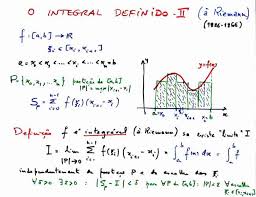 O INTEGRAL DEFINIDO - II (à Riemann)
(1826-1866)
f: [a,b] → ℝ
ξᵢ ∈ [xᵢ, xᵢ₊₁]
a = x₀ < x₁ < ... < xᵢ < ... < xₙ = b
y = f(x)
P: {x₀, x₁, ... xₙ} partição de [a,b]
|P| = max |xᵢ₊₁ - xᵢ|
Sₚ = Σᵢ₌₀ⁿ⁻¹ f(ξᵢ) (xᵢ₊₁ - xᵢ)
a xᵢ xᵢ₊₁ b x
Definição f é integrável (à Riemann) se existe "limite" I
I = lim |P|→0 Σᵢ₌₀ⁿ⁻¹ f(ξᵢ) (xᵢ₊₁ - xᵢ) = ∫ₐᵇ f(x) dx = ∫ₐᵇ f
independentemente da partição P e da escolha dos ξᵢ
∀δ>0 ∃ε>0 : |Sₚ - I| < δ para ∀P de [a,b]: |P| < ε ∀ escolha